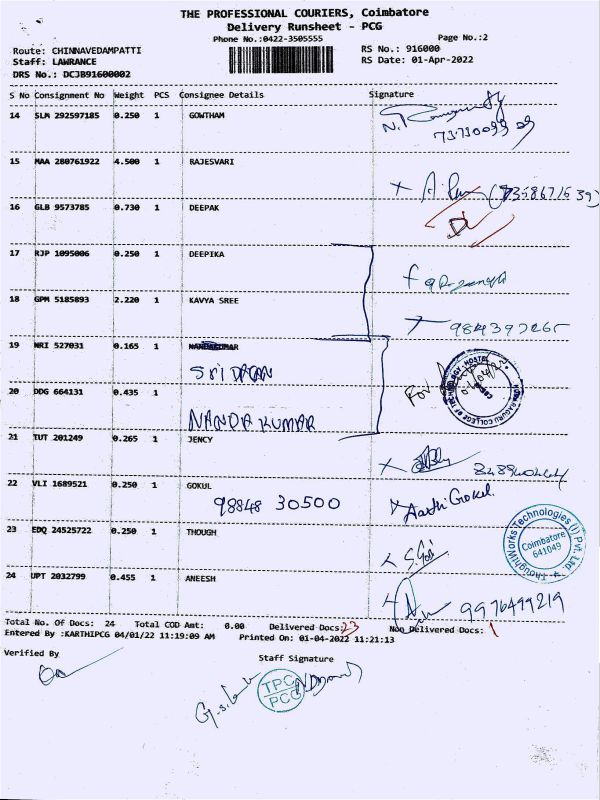 THE PROFESSIONAL COURIERS, Coimbatore
Delivery Runsheet - PCG
Phone No.:0422-3505555
Page No.:2
Route: CHINNAVEDAMPATTI
RS No.: 916000
Staff: LAWRANCE
RS Date: 01-Apr-2022
DRS No.: DCJB91600002
S No Consignment No Weight PCS Consignee Details Signature
14 SLM 292597185 0.250 1 GOWTHAM
15 MAA 280761922 4.500 1 RAJESVARI
16 GLB 9573785 0.730 1 DEEPAK
17 RJP 1095006 0.250 1 DEEPIKA
18 GPM 5185893 2.220 1 KAVYA SREE
19 NRI 527031 0.165 1 NANDAKUMAR
SRIDARAN
20 DDG 664131 0.435 1
NANDA KUMAR
21 TUT 201249 0.265 1 JENCY
22 VLI 1689521 0.250 1 GOKUL
98848 30500
Aarthi Gokul
23 EDQ 24525722 0.250 1 THOUGH
ThoughtWorks Technologies (I) Pvt. Ltd.
Coimbatore
641049
24 UPT 2032799 0.455 1 ANEESH
9976499219
Total No. Of Docs: 24 Total COD Amt: 0.00 Delivered Docs:23 Non Delivered Docs:1
Entered By :KARTHIPCG 04/01/22 11:19:09 AM Printed On: 01-04-2022 11:21:13
Verified By
Staff Signature
TPC
PCG